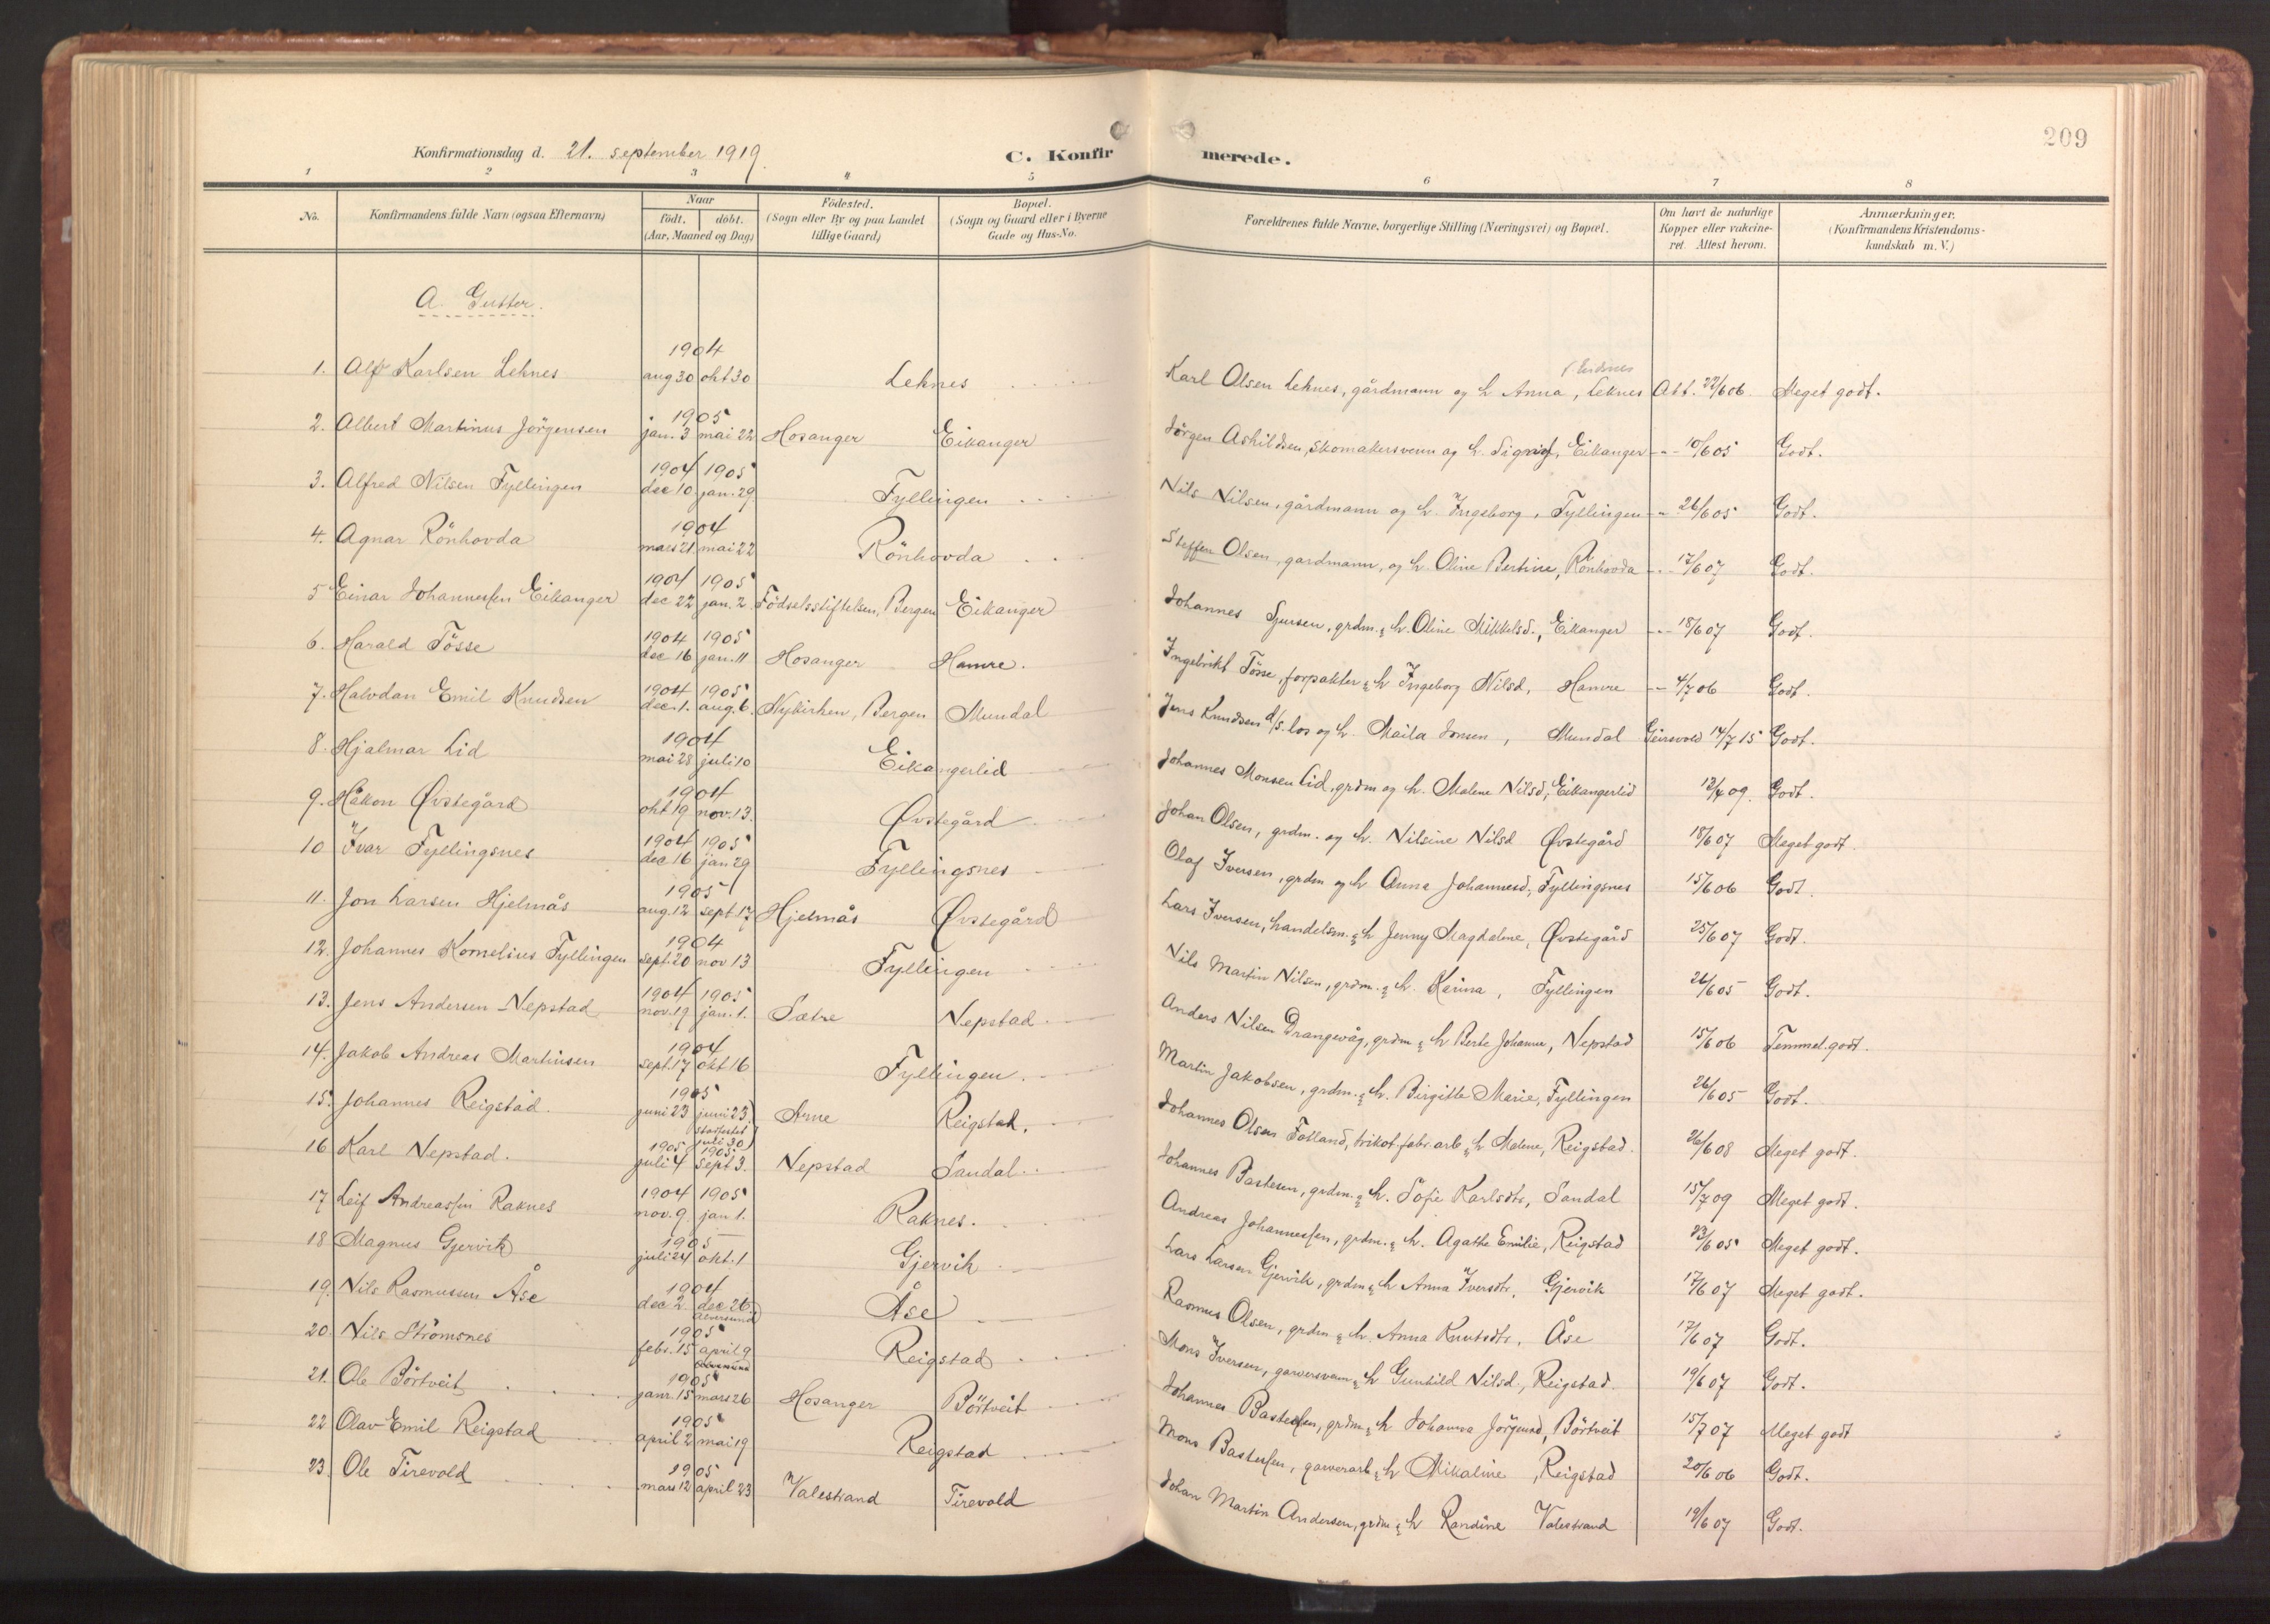 209
Konfirmationsdag d. 21. september 1919.
C. Konfirmerede.
1 2 3 4 5 6 7 8
No. Konfirmandens fulde Navn (ogsaa Efternavn) Naar født. døbt. (Aar, Maaned og Dag) Fødested. (Sogn eller By og paa Landet tillige Gaard) Bopæl. (Sogn og Gaard eller i Byerne Gade og Hus-No. Forældrenes fulde Navne, borgerlige Stilling (Næringsvei) og Bopæl. Om havt de naturlige Kopper eller vakcineret. Attest herom. Anmærkninger. (Konfirmandens Kristendomskundskab m. V.)
A. Gutter.
1. Alf Karlsen Leknes 1904 aug 30 okt 30 Leknes Karl Olsen Leknes, gårdmann og h. Anna, Leknes Att. 22/6 06 Meget godt.
2. Albert Martinus Jörgensen 1905 jan. 3 mai 22 Hosanger Eikanger Jörgen Askildsen, skomakersvenn og h. Eikanger -"- 10/6 05 Godt.
3. Alfred Nilsen Fyllingen 1904 1905 dec 10 jan. 29 Fyllingen Nils Nilsen, gårdmann og h. Ingeborg, Fyllingen -"- 26/6 05 Godt.
4. Agnar Rönhovda 1904 mars 21 mai 22 Rönhovda Steffen Olsen, gardmann, og h. Oline Bertine, Rönhovda -"- 12/6 07 Godt.
5 Einar Johannessen Eikanger 1904 1905 dec 22 jan. 2 Födselsstiftelsen, Bergen Eikanger Johannes Sjursen, grdm. & h. Oline Mikkelsd., Eikanger -"- 18/6 07 Godt.
6. Harald Tösse 1904 1905 dec 16 jan. 11 Hosanger Hamre. Ingebrikt Tösse, forpakter & h Ingeborg Nilsd, Hamre -"- 4/7 06 Godt.
7. Halvdan Emil Knudsen 1904 1905 dec. 1. aug. 6. Nykirken, Bergen Mundal Jens Knudsen d/s. los og h. Maila Jonsen, Mundal 14/7 15 Godt.
8. Hjalmar Lid 1904 mai 28 juli 10 Eikangerlid Johannes Monsen Lid, grdm og h. Malene Nilsd, Eikangerlid 09. Godt.
9. Håkon Øvstegård 1904 okt 19 nov. 13. Øvstegård Johan Olsen, grdm. og h. Nilsine Nilsd Øvstegård 18/6 07 Meget godt.
10 Ivar Fyllingsnes 1904 1905 dec 16 jan 29 Fyllingsnes Olaf Iversen, grdm og h. Anna Johannesd, Fyllingsnes 15/6 06 Godt.
11. Jon Larsen Hjelmås 1905 aug. 12 sept. 17 Hjelmås Øvstegård Lars Iversen, handelsm. & h Jenny Magdalene, Øvstegård 25/6 07 Godt.
12. Johannes Kornelius Fyllingen 1904 sept. 20 nov 13 Fyllingen Nils Martin Nilsen, grdm. & h. Karina, Fyllingen 26/6 05 Godt.
13. Jens Andersen Nepstad 1904 1905 nov. 19 jan. 1. Sætre Nepstad Anders Nilsen Drangevåg, grdm & h Berte Johanne, Nepstad 15/6 06 Temmel. godt.
14. Jakob Andreas Martinsen 1904 sept. 17 okt 16 Fyllingen Martin Jakobsen, grdm. & h. Birgitte Marie, Fyllingen 26/6 05 Godt.
15. Johannes Reigstad. 1905 juni 23 juni 23 (stadfestet juli 30) Arne Reigstad. Johannes Olsen Fotland, trikot. fabr. arb & h Malene, Reigstad. 26/6 08 Meget godt.
16 Karl Nepstad. 1905 1905 juli 4 sept 3. Nepstad Sandal Johannes Bastesen, grdm. & h. Sofie Karlsdtr, Sandal 15/7 09 Meget godt.
17 Leif Andreassen Raknes 1904 1905 nov. 9 jan 1. Raknes. Andreas Johannessen, grdm. & h. Agathe Emilie, Reigstad 23/6 05 Meget godt.
18 Magnus Gjervik 1905 juli 24 okt. 1 Gjervik Lars Larsen Gjervik, grdm & h Anna Iversdtr, Gjervik 17/6 07 Meget godt.
19. Nils Rasmussen Åse 1904 dec 2 dec 26 Alversund Åse Rasmus Olsen, grdm & h. Anna Knutsdtr, Åse 17/6 07 Godt.
20. Nils Strömsnes 1905 febr. 15 april 9 Reigstad Mons Iversen, garversvenn & h Gunhild Nilsd., Reigstad 19/6 07 Godt.
21. Ole Börtveit 1905 janr. 15 mars 26 Hosanger Börtveit Johannes Bastessen, grdm & h Johanna Jörgensd, Börtveit 15/7 07 Meget godt
22 Olav Emil Reigstad 1905 april 2 mai 19 Reigstad Mons Bastessen, garverarb & h Mikaline, Reigstad 20/6 06 Godt.
23. Ole Tirevold 1905 mars 12 april 23 Valestrand Tirevold Johan Martin Andersen, grdm & h Randine Valestrand 19/6 07 Godt.